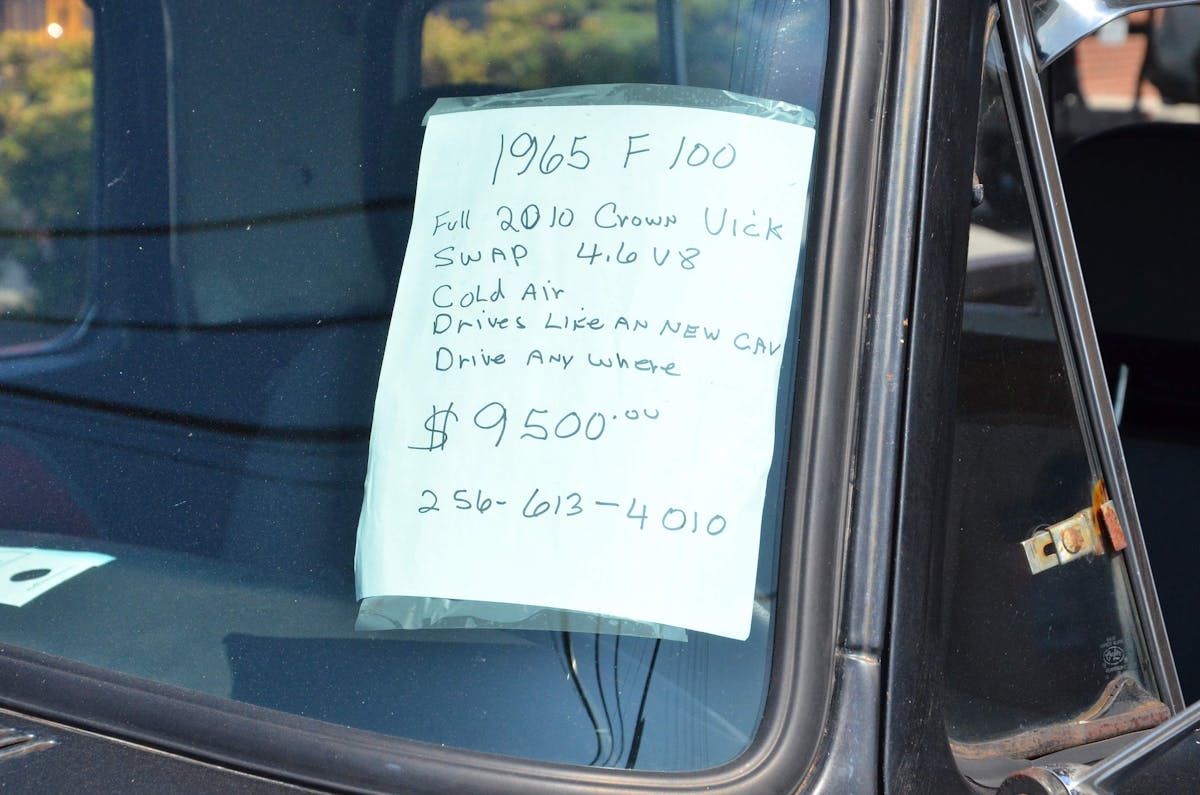 1965 F100
Full 2010 Crown Vick
SWAP 4.6 V8
Cold Air
Drives Like AN NEW CAr
Drive Any where
$9500.00
256-613-4010